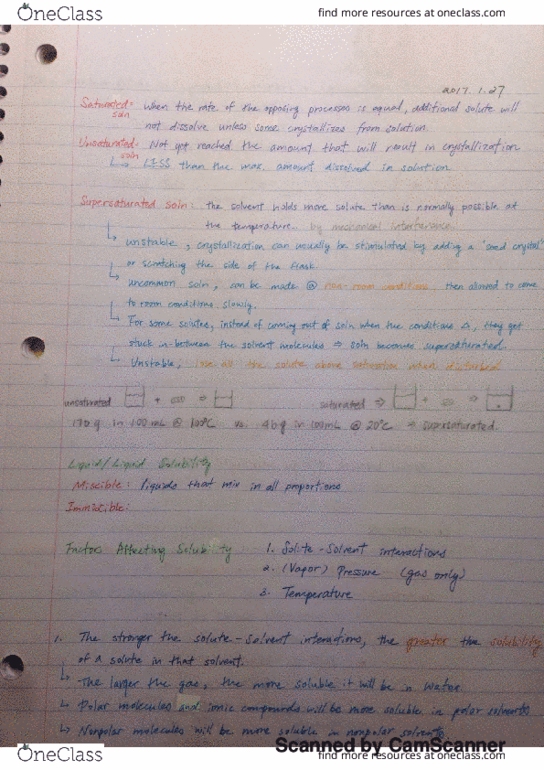 OneClass find more resources at oneclass.com
2017.1.27
Saturated soln: when the rate of the opposing processes is equal, additional solute will
not dissolve unless some crystallizes from solution.
Unsaturated soln: Not yet reached the amount that will result in crystallization
↳ LESS than the max. amount dissolved in solution
Supersaturated Soln: the solvent holds more solute than is normally possible at
the temperature. by mechanical interference.
↳ unstable, crystallization can usually be stimulated by adding a "seed crystal"
or scratching the side of the flask
↳ uncommon soln, can be made @ non-room conditions then allowed to come
to room conditions slowly.
↳ For some solutes, instead of coming out of soln when the conditions Δ, they get
stuck in-between the solvent molecules ⇒ soln becomes supersaturated.
↳ Unstable, lose all the solute above saturation when disturbed
unsaturated + ⇒ saturated ⇒ + ⇒
170g in 100mL @ 100°C vs. 46g in 100mL @ 20°C ⇒ supersaturated.
Liquid/Liquid Solubility
Miscible: liquids that mix in all proportions
Immiscible:
Factors Affecting Solubility 1. Solute-Solvent interactions
2. (Vapor) Pressure (gas only)
3. Temperature
1. The stronger the solute-solvent interactions, the greater the solubility
of a solute in that solvent.
↳ The larger the gas, the more soluble it will be in water
↳ Polar molecules and ionic compounds will be more soluble in polar solvents
↳ Nonpolar molecules will be more soluble in nonpolar solvents
Scanned by CamScanner
OneClass find more resources at oneclass.com